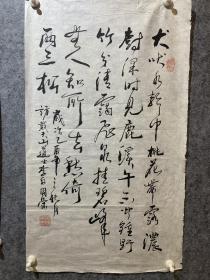 犬吠水聲中桃花帶露濃
樹深时見鹿溪午不聞鐘野
竹分清靄飛泉挂碧峰
無人知所去愁倚
兩三松
歲次乙酉
訪戴天山道士李白